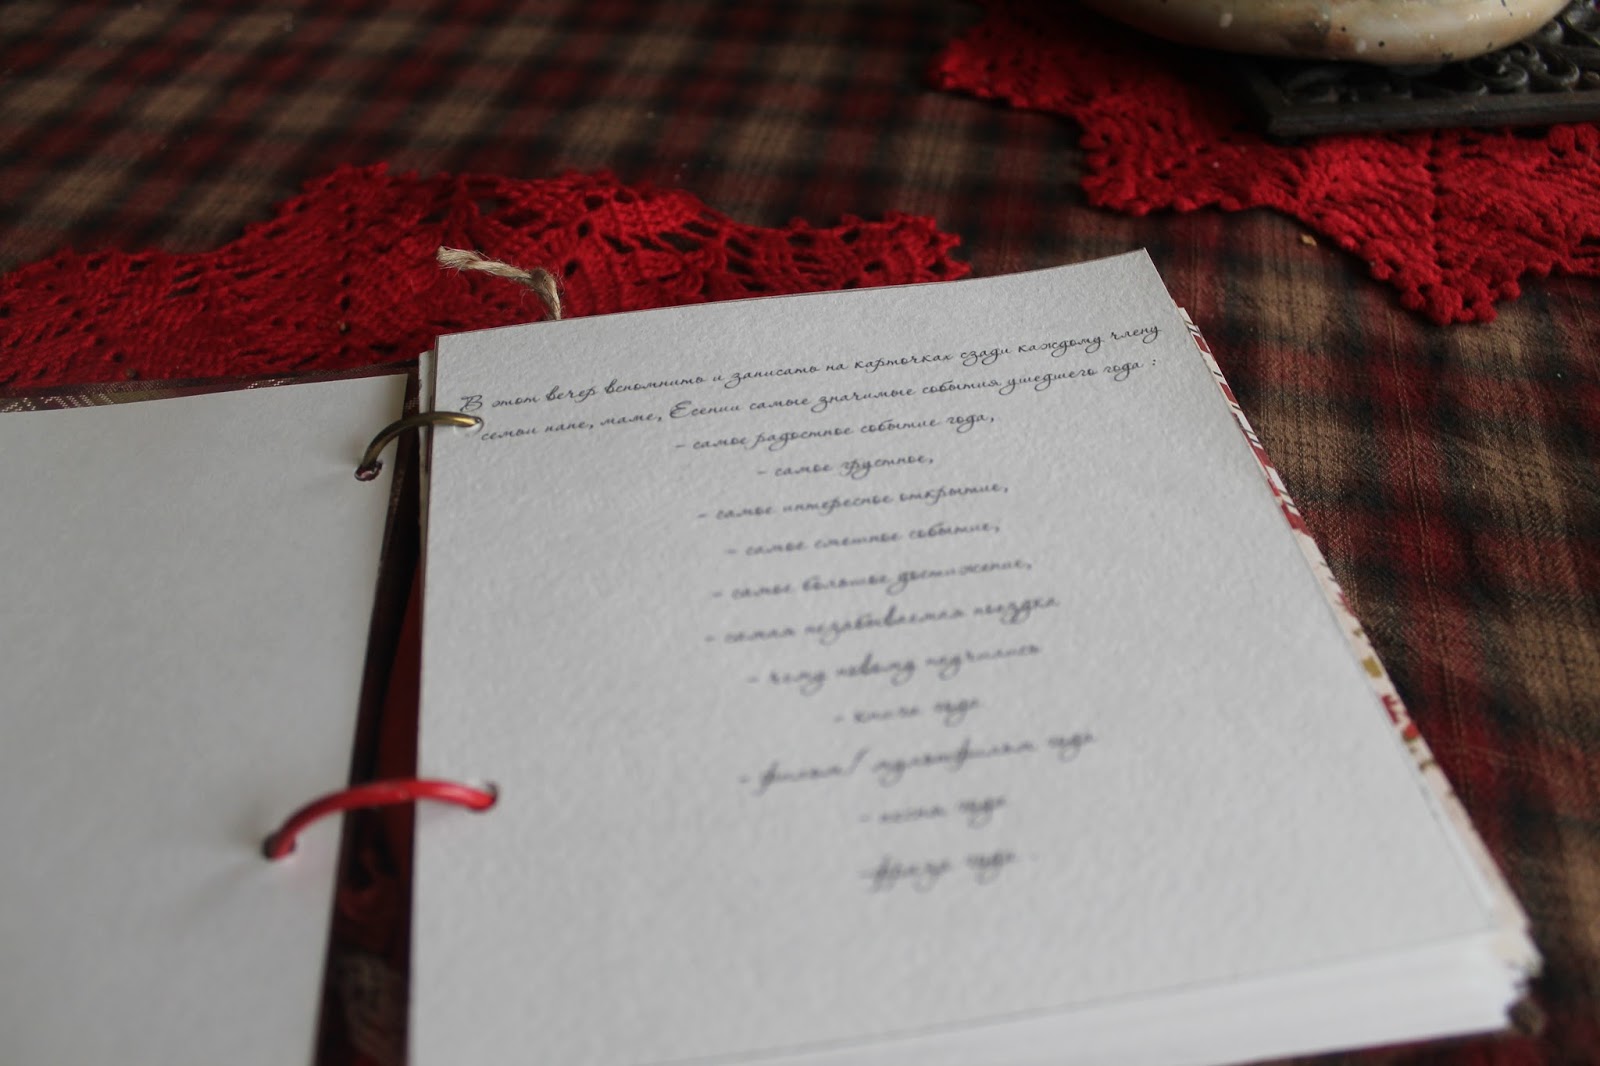 В этот вечер вспомнить и записать на карточках сзади каждому члену
семьи папе, маме, Есении самые значимые события ушедшего года :
- самое радостное событие года,
- самое грустное,
- самое интересное открытие,
- самое смешное событие,
- самое большое достижение,
- самая незабываемая поездка
- чему новому научились
- книга года
- фильм/ мультфильм года
- песня года
-фраза года